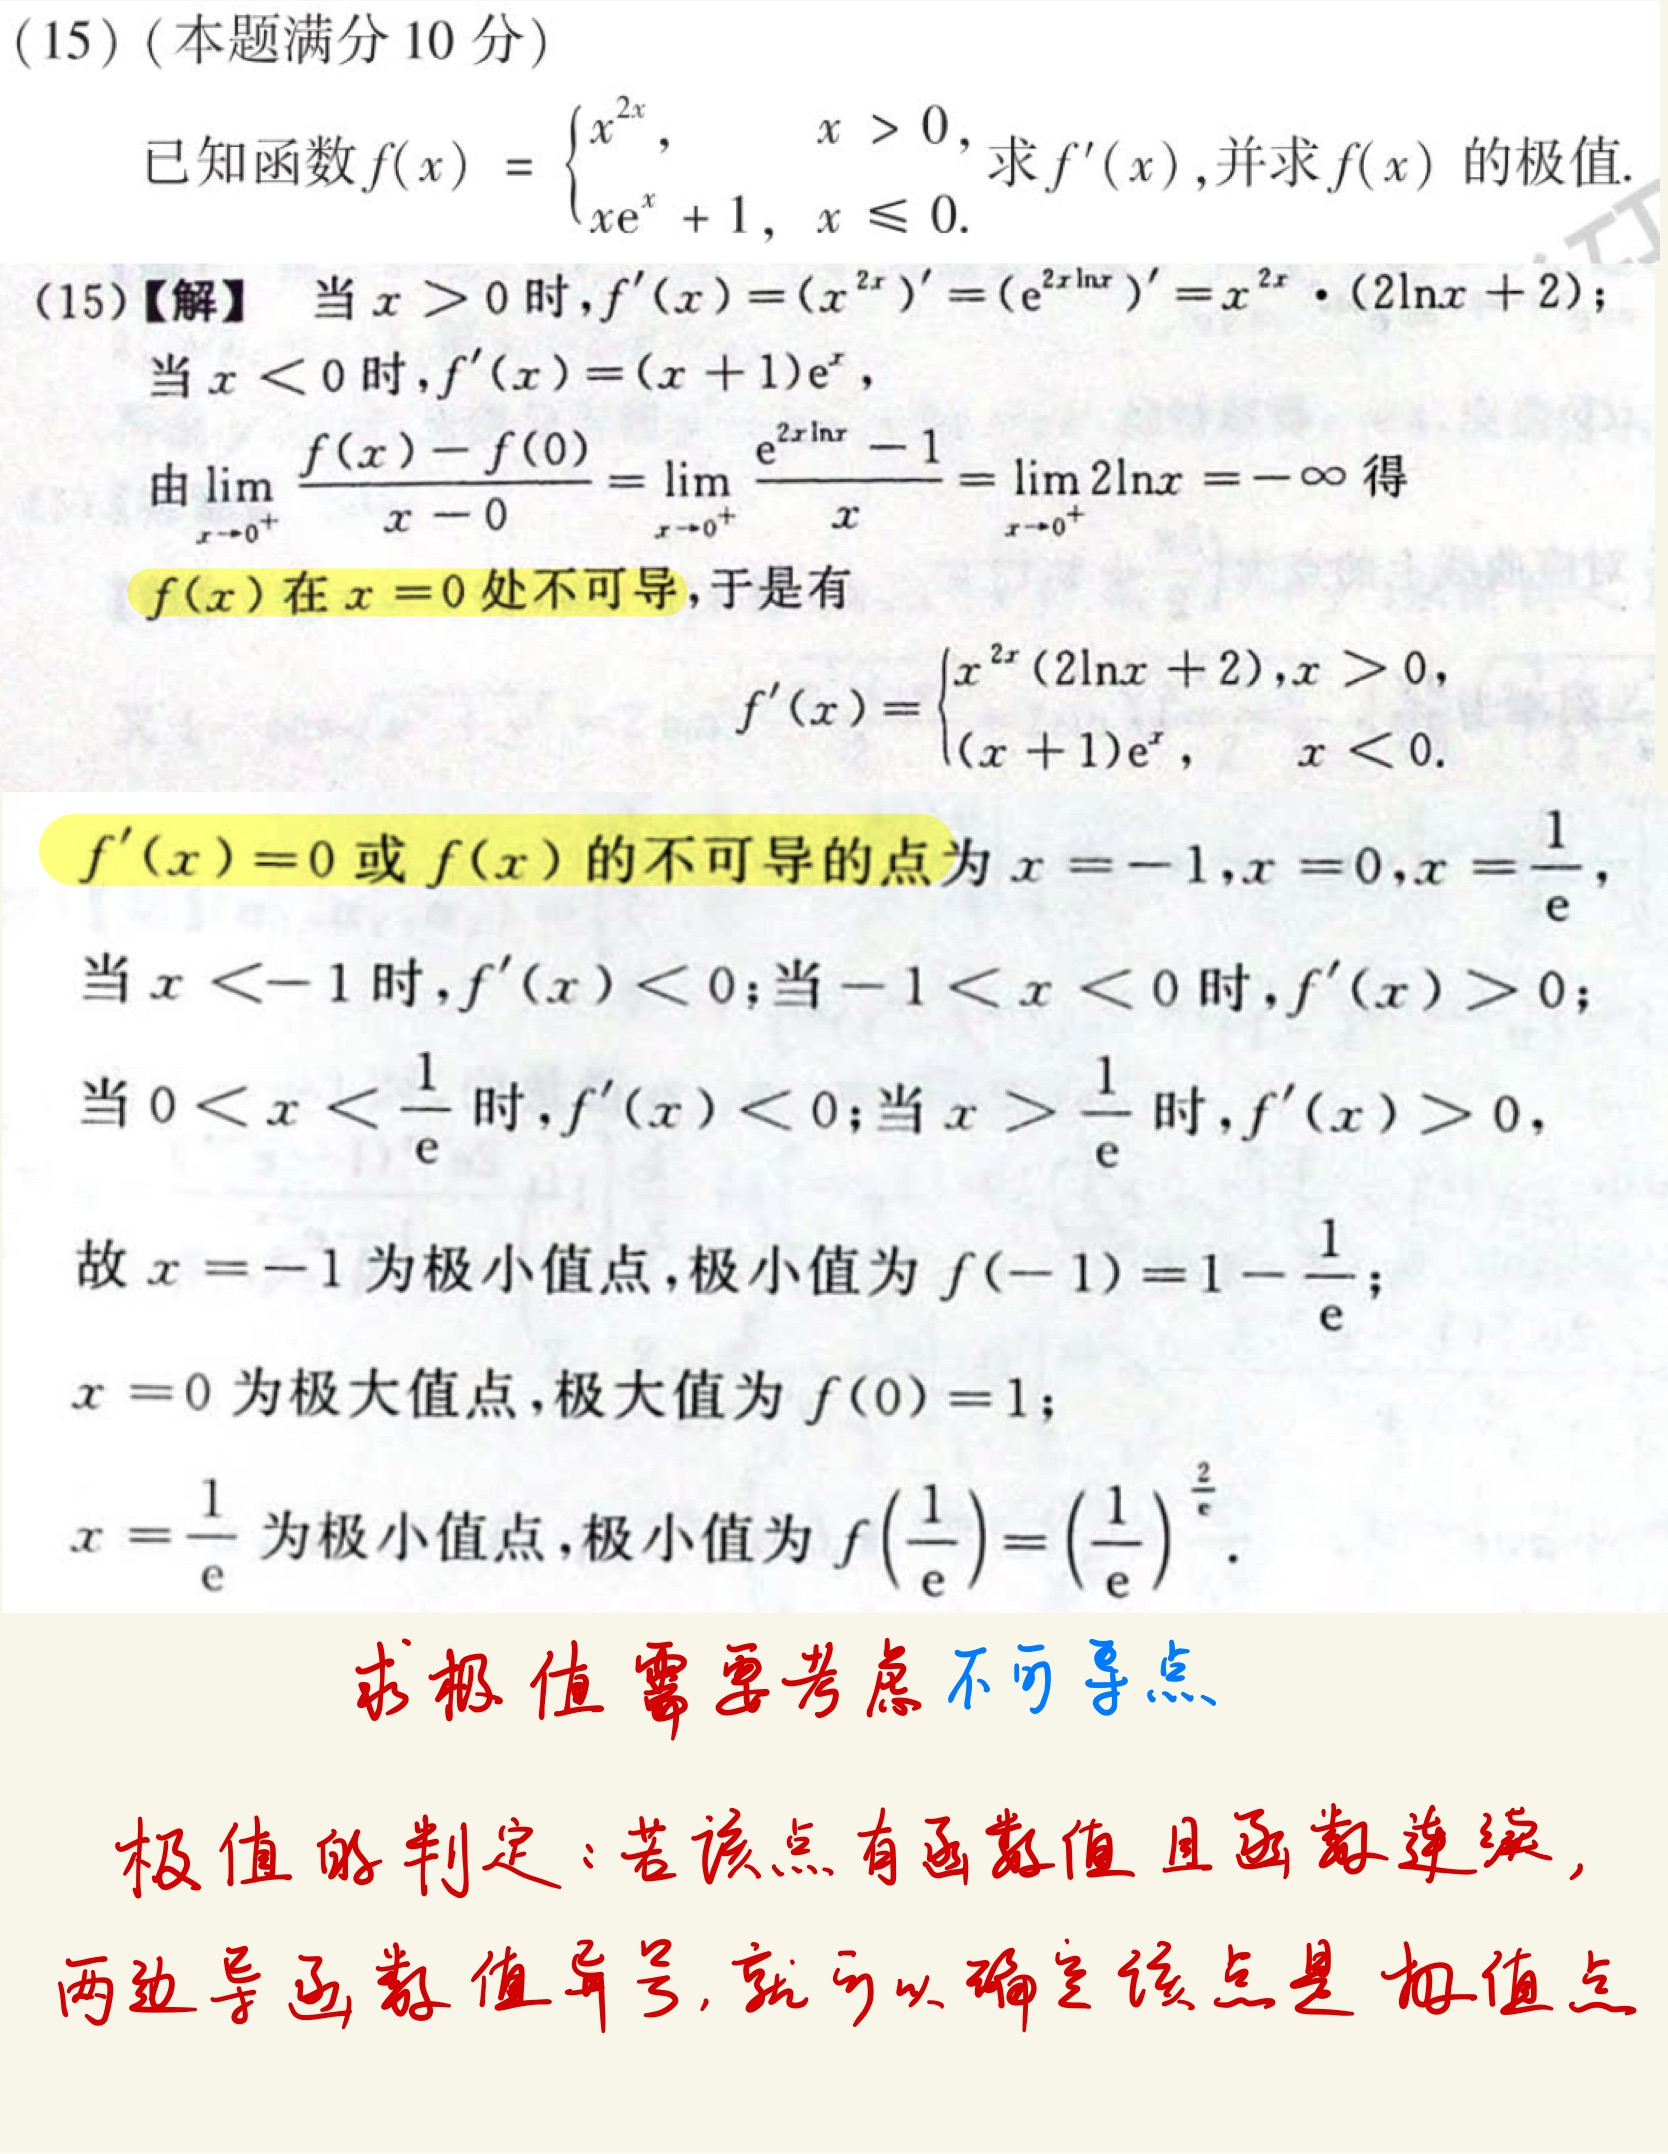 (15) (本题满分 10 分)
已知函数 f(x) = { x^{2x}, x > 0, xe^x + 1, x ≤ 0. 求 f′(x),并求 f(x) 的极值.
(15)【解】 当 x > 0 时,f′(x) = (x^{2x})′ = (e^{2xlnx})′ = x^{2x} · (2lnx + 2);
当 x < 0 时,f′(x) = (x + 1)e^x,
由 lim_{x→0⁺} \frac{f(x) − f(0)}{x − 0} = lim_{x→0⁺} \frac{e^{2xlnx} − 1}{x} = lim_{x→0⁺} 2lnx = −∞ 得
f(x) 在 x = 0 处不可导,于是有
f′(x) = { x^{2x}(2lnx + 2), x > 0, (x + 1)e^x, x < 0.
f′(x) = 0 或 f(x) 的不可导的点为 x = −1, x = 0, x = \frac{1}{e},
当 x < −1 时,f′(x) < 0;当 −1 < x < 0 时,f′(x) > 0;
当 0 < x < \frac{1}{e} 时,f′(x) < 0;当 x > \frac{1}{e} 时,f′(x) > 0,
故 x = −1 为极小值点,极小值为 f(−1) = 1 − \frac{1}{e};
x = 0 为极大值点,极大值为 f(0) = 1;
x = \frac{1}{e} 为极小值点,极小值为 f(\frac{1}{e}) = (\frac{1}{e})^{\frac{2}{e}}.
求极值需要考虑不可导点
极值的判定:若该点有函数值且函数连续,
两边导函数值异号,就可以确定该点是极值点